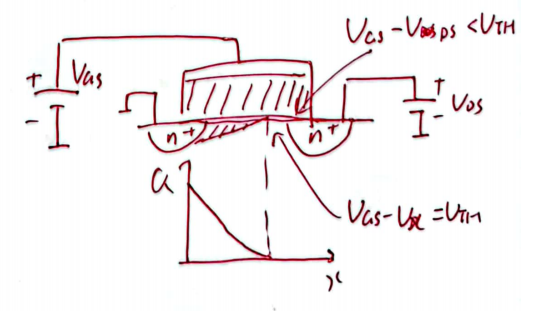 VGS - VDS < VTH
+ VGS
-
+
- VDS
n+ n+
Q
VGS - Vx = VTH
x